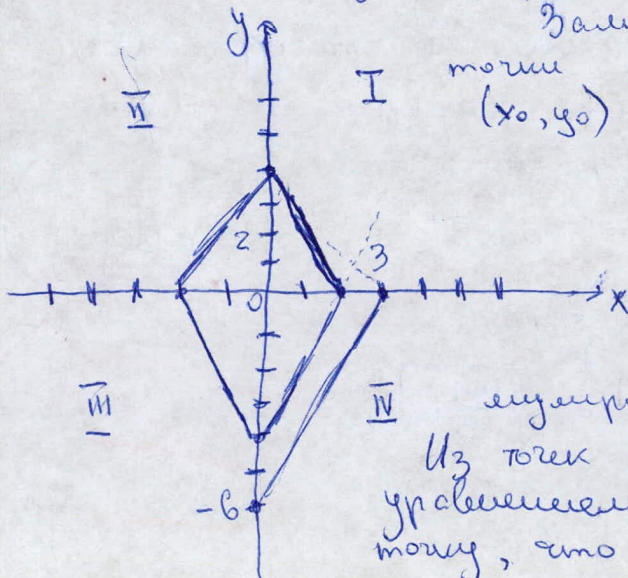 y
Зам
точки
I
II
(x₀, y₀)
2
3
0
x
III
IV
Из точек
-6
уравнением
точку, что